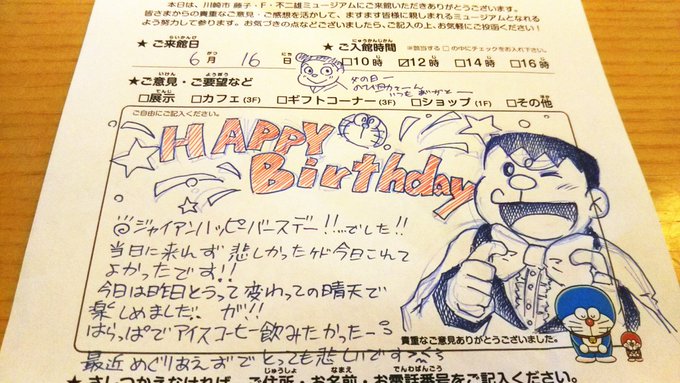 本日は、川崎市 藤子・F・不二雄ミュージアムにご来館いただきありがとうございます。
皆さまからの貴重なご意見・ご感想を活かして、ますます皆様に親しまれるミュージアムとなれる
よう努力して参ります。お気づきの点などございましたら、ご記入の上、お気軽にご投函ください!
★ご来館日 ★ご入館時間 ※該当する□の中にチェックをお入れ下さい。
6月 16日 □10時 ☑12時 □14時 □16時
父の日ー
いつもありがとー
★ご意見・ご要望など
□展示 □カフェ(3F) □ギフトコーナー(3F) □ショップ(1F) □その他
ご自由にご記入ください。
HAPPY
Birthday
ジャイアンハッピバースデー!!…でした!!
当日に来れず悲しかったけど今日これて
よかったです!!
今日は昨日とうって変わっての晴天で
楽しめました!! が!!
はらっぱでアイスコーヒー飲みたかったー
最近めぐりあえずでとっても悲しいです
貴重なご意見ありがとうございました。
★さしつかえなければ、ご住所・お名前・お電話番号をご記入ください。